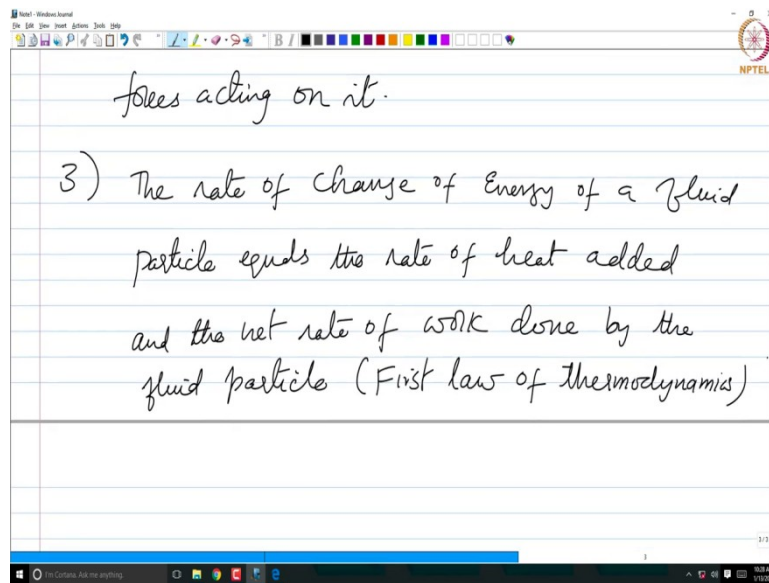 Note1 - Windows Journal
File Edit View Insert Actions Tools Help
NPTEL
forces acting on it.
3) The rate of change of Energy of a fluid
particle equals the rate of heat added
and the net rate of work done by the
fluid particle (First law of thermodynamics)
3/3
3
I'm Cortana. Ask me anything.